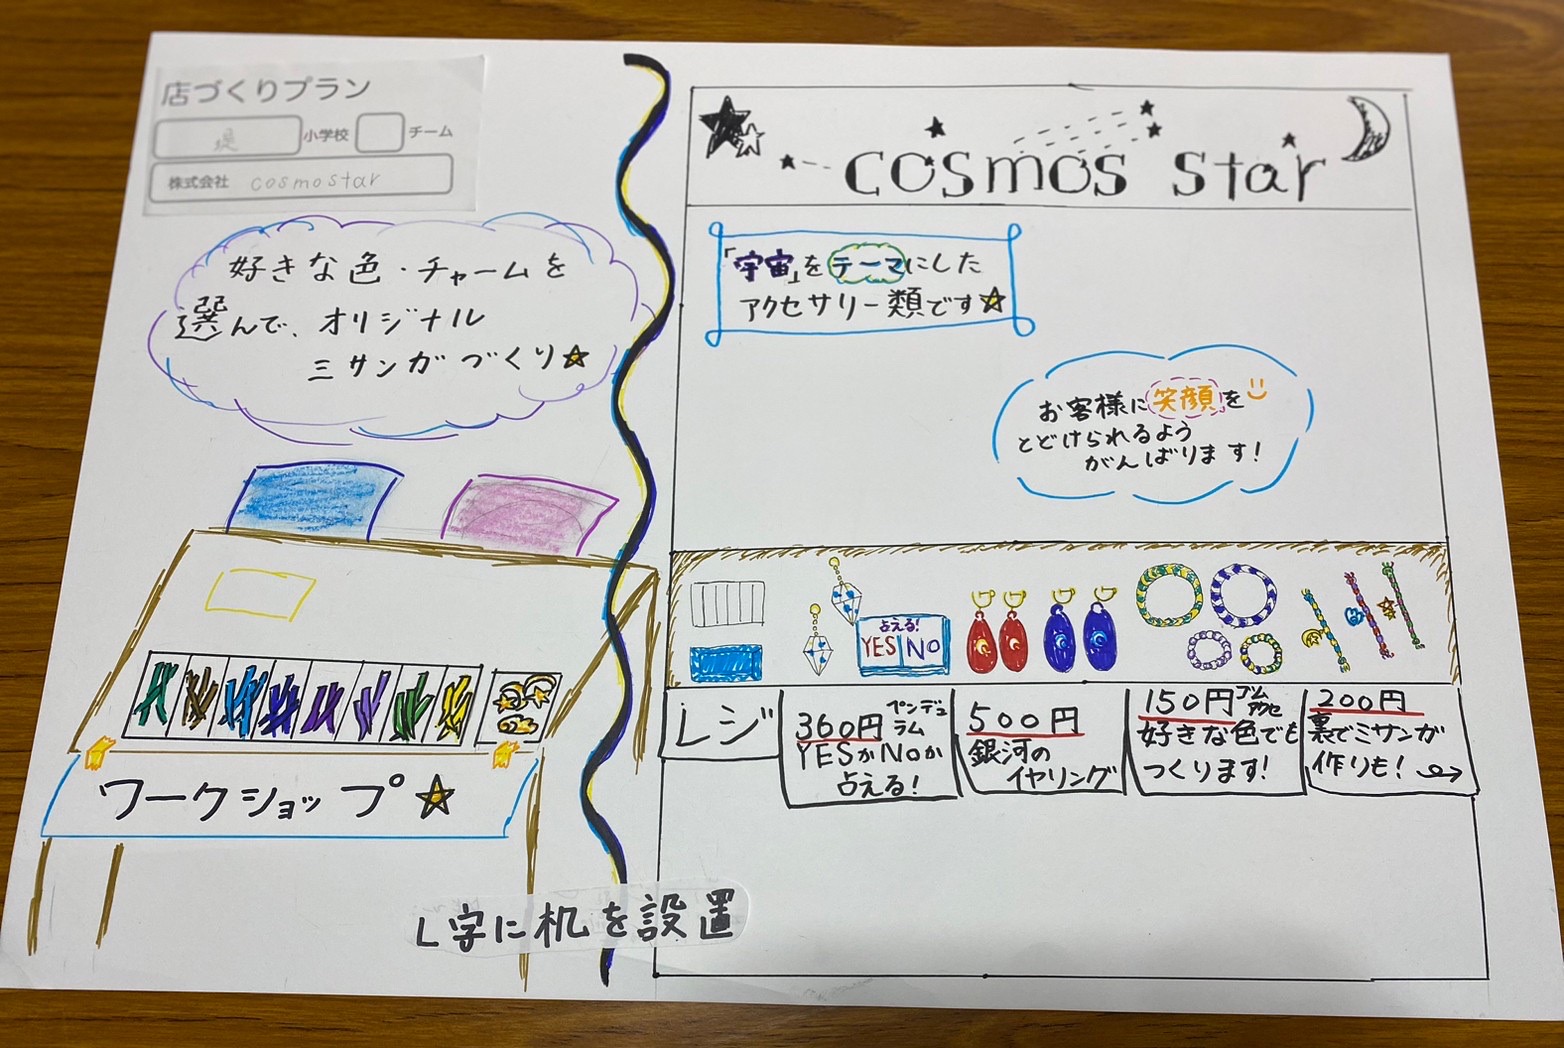 店づくりプラン
堤 小学校 チーム
株式会社 cosmostar
好きな色・チャームを
選んで、オリジナル
ミサンガづくり☆
ワークショップ☆
L字に机を設置
cosmos star
「宇宙」をテーマにした
アクセサリー類です☆
お客様に笑顔を
とどけられるよう
がんばります!
占える!
YES NO
レジ
360円 ペンデュ
ラム
YESかNoか
占える!
500円
銀河の
イヤリング
150円 ゴム
アクセ
好きな色でも
つくります!
200円
裏でミサンガ
作りも!